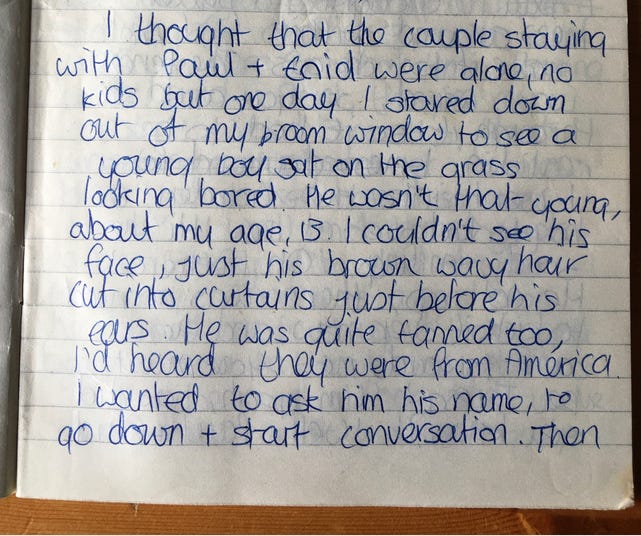 I thought that the couple staying
with Paul + Enid were alone, no
kids but one day I stared down
out of my broom window to see a
young boy sat on the grass
looking bored. He wasn't that young,
about my age, 13. I couldn't see his
face, just his brown wavy hair
cut into curtains just before his
ears. He was quite tanned too,
I'd heard they were from America.
I wanted to ask him his name, to
go down + start conversation. Then